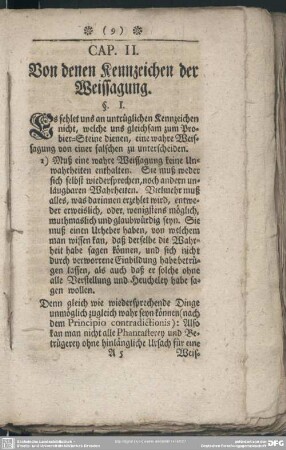 ❀ (9) ❀
CAP. II.
Von denen Kennzeichen der
Weissagung.
§. I.
Es fehlet uns an untrüglichen Kennzeichen
nicht, welche uns gleichsam zum Pro-
bier-Steine dienen, eine wahre Weis-
sagung von einer falschen zu unterscheiden.
1) Muß eine wahre Weissagung keine Un-
wahrheiten enthalten. Sie muß weder
sich selbst wiedersprechen, noch andern un-
läugbaren Wahrheiten. Vielmehr muß
alles, was darinnen erzehlet wird, entwe-
der erweislich, oder, wenigstens möglich,
muthmaslich und glaubwürdig seyn. Sie
muß einen Urheber haben, von welchem
man wissen kan, daß derselbe die Wahr-
heit habe sagen können, und sich nicht
durch verworrene Einbildung habe betrü-
gen lassen, als auch daß er solche ohne
alle Verstellung und Heucheley habe sa-
gen wollen.
Denn gleich wie wiedersprechende Dinge
unmöglich zugleich wahr seyn können (nach
dem Principio contradictionis): Also
kan man nicht alle Phantasterey und Be-
trügerey ohne hinlängliche Ursach für eine
A 5 Weis-
DFG